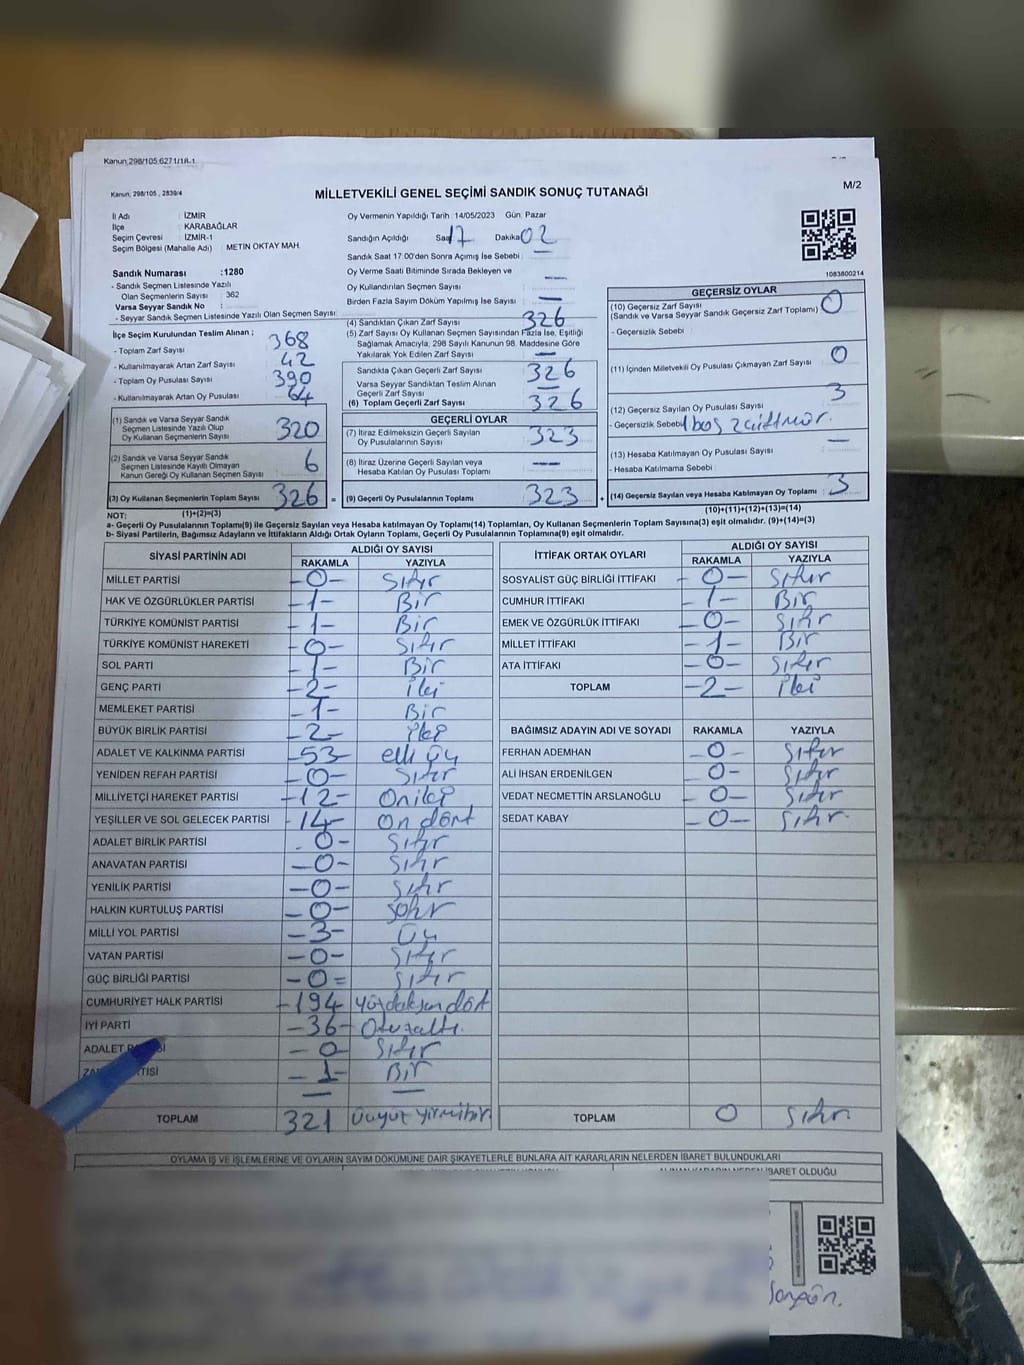 Kanun,298/105 6271/18-1
Kanun, 298/105 , 2839/4
MİLLETVEKİLİ GENEL SEÇİMİ SANDIK SONUÇ TUTANAĞI
M/2
İl Adı : İZMİR
İlçe : KARABAĞLAR
Seçim Çevresi : İZMİR-1
Seçim Bölgesi (Mahalle Adı) : METİN OKTAY MAH.
Sandık Numarası :1280
- Sandık Seçmen Listesinde Yazılı
Olan Seçmenlerin Sayısı : 362
Varsa Seyyar Sandık No :
- Seyyar Sandık Seçmen Listesinde Yazılı Olan Seçmen Sayısı:
İlçe Seçim Kurulundan Teslim Alınan ;
- Toplam Zarf Sayısı : 368
- Kullanılmayarak Artan Zarf Sayısı : 42
- Toplam Oy Pusulası Sayısı : 390
- Kullanılmayarak Artan Oy Pusulası : 64
(1) Sandık ve Varsa Seyyar Sandık
Seçmen Listesinde Yazılı Olup
Oy Kullanan Seçmenlerin Sayısı : 320
(2) Sandık ve Varsa Seyyar Sandık
Seçmen Listesinde Kayıtlı Olmayan
Kanun Gereği Oy Kullanan Seçmen Sayısı : 6
(3) Oy Kullanan Seçmenlerin Toplam Sayısı : 326 =
Oy Vermenin Yapıldığı Tarih :14/05/2023 Gün: Pazar
Sandığın Açıldığı Saat 17 Dakika 02
Sandık Saat 17:00'den Sonra Açımış İse Sebebi : —
Oy Verme Saati Bitiminde Sırada Bekleyen ve
Oy Kullandırılan Seçmen Sayısı : —
Birden Fazla Sayım Döküm Yapılmış İse Sayısı : —
(4) Sandıktan Çıkan Zarf Sayısı : 326
(5) Zarf Sayısı Oy Kullanan Seçmen Sayısından Fazla İse, Eşitliği
Sağlamak Amacıyla, 298 Sayılı Kanunun 98. Maddesine Göre
Yakılarak Yok Edilen Zarf Sayısı : —
Sandıkta Çıkan Geçerli Zarf Sayısı : 326
Varsa Seyyar Sandıktan Teslim Alınan
Geçerli Zarf Sayısı : —
(6) Toplam Geçerli Zarf Sayısı : 326
GEÇERLİ OYLAR
(7) İtiraz Edilmeksizin Geçerli Sayılan
Oy Pusulasının Sayısı : 323
(8) İtiraz Üzerine Geçerli Sayılan veya
Hesaba Katılan Oy Pusulası Toplamı : —
(9) Geçerli Oy Pusulalarının Toplamı : 323 +
1083800214
GEÇERSİZ OYLAR
(10) Geçersiz Zarf Sayısı
(Sandık ve Varsa Seyyar Sandık Geçersiz Zarf Toplamı) : 0
- Geçersizlik Sebebi :
(11) İçinden Milletvekili Oy Pusulası Çıkmayan Zarf Sayısı : 0
(12) Geçersiz Sayılan Oy Pusulası Sayısı : 3
- Geçersizlik Sebebi
(13) Hesaba Katılmayan Oy Pusulası Sayısı : —
- Hesaba Katılmama Sebebi :
(14) Geçersiz Sayılan veya Hesaba Katılmayan Oy Toplamı : 3
NOT: (1)+(2)=(3) (10)+(11)+(12)+(13)=(14)
a- Geçerli Oy Pusulalarının Toplamı(9) ile Geçersiz Sayılan veya Hesaba katılmayan Oy Toplamı(14) Toplamları, Oy Kullanan Seçmenlerin Toplam Sayısına(3) eşit olmalıdır. (9)+(14)=(3)
b- Siyasi Partilerin, Bağımsız Adayların ve İttifakların Aldığı Ortak Oyların Toplamı, Geçerli Oy Pusulalarının Toplamına(9) eşit olmalıdır.
SİYASİ PARTİNİN ADI ALDIĞI OY SAYISI
RAKAMLA YAZIYLA
MİLLET PARTİSİ -0- Sıfır
HAK VE ÖZGÜRLÜKLER PARTİSİ -1- Bir
TÜRKİYE KOMÜNİST PARTİSİ -1- Bir
TÜRKİYE KOMÜNİST HAREKETİ -0- Sıfır
SOL PARTİ -1- Bir
GENÇ PARTİ -2- iki
MEMLEKET PARTİSİ -1- Bir
BÜYÜK BİRLİK PARTİSİ -2- iki
ADALET VE KALKINMA PARTİSİ -53- elli üç
YENİDEN REFAH PARTİSİ -0- Sıfır
MİLLİYETÇİ HAREKET PARTİSİ -12- Oniki
YEŞİLLER VE SOL GELECEK PARTİSİ -14- On dört
ADALET BİRLİK PARTİSİ -0- Sıfır
ANAVATAN PARTİSİ -0- Sıfır
YENİLİK PARTİSİ -0- Sıfır
HALKIN KURTULUŞ PARTİSİ -0- Sıfır
MİLLİ YOL PARTİSİ -3- Üç
VATAN PARTİSİ -0- Sıfır
GÜÇ BİRLİĞİ PARTİSİ -0= Sıfır
CUMHURİYET HALK PARTİSİ -194
İYİ PARTİ -36- Otuzaltı
ADALET -0- Sıfır
-1- Bir
— —
TOPLAM 321 Üçyüz yirmibir
İTTİFAK ORTAK OYLARI ALDIĞI OY SAYISI
RAKAMLA YAZIYLA
SOSYALİST GÜÇ BİRLİĞİ İTTİFAKI -0- Sıfır
CUMHUR İTTİFAKI -1- Bir
EMEK VE ÖZGÜRLÜK İTTİFAKI -0- Sıfır
MİLLET İTTİFAKI -1- Bir
ATA İTTİFAKI -0- Sıfır
TOPLAM -2- iki
BAĞIMSIZ ADAYIN ADI VE SOYADI RAKAMLA YAZIYLA
FERHAN ADEMHAN -0- Sıfır
ALİ İHSAN ERDENİLGEN -0- Sıfır
VEDAT NECMETTİN ARSLANOĞLU -0- Sıfır
SEDAT KABAY -0- Sıfır
TOPLAM 0 Sıfır
OYLAMA İŞ VE İŞLEMLERİNE VE OYLARIN SAYIM DÖKÜMÜNE DAİR ŞİKAYETLERLE BUNLARA AİT KARARLARIN NELERDEN İBARET BULUNDUKLARI
İBARET OLDUĞU